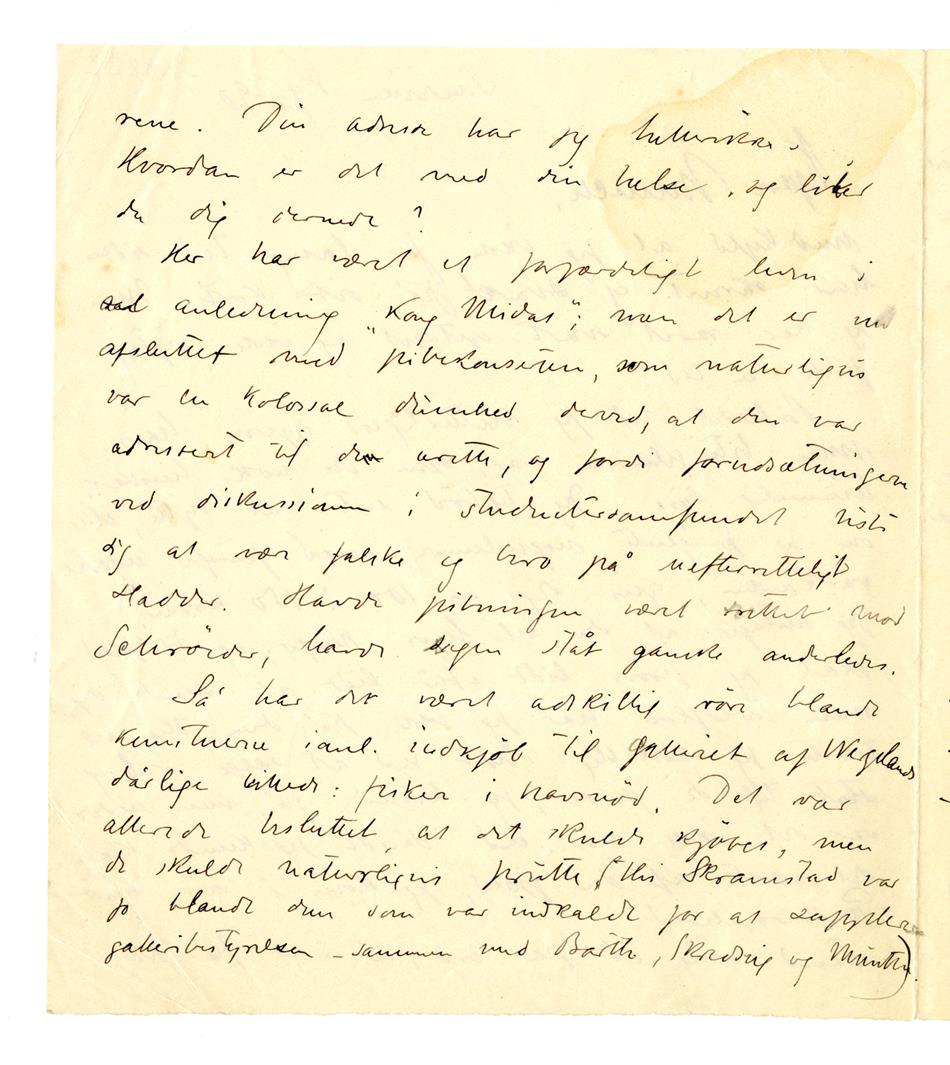 rene. Din adresse har jeg hellerikke.
Hvordan er det med din helse, og liker
du dig dernede?
Her har været et forfærdeligt leven i
anledning "Kong Midas"; men det er nu
afsluttet med pibekonserten, som naturligvis
var en kolossal dumhed derved, at den var
adressert til de urette, og fordi forudsætningerne
ved diskussionen i studentersamfundet viste
sig at være falske og bero på uefterretteligt
sladder. Havde pibningen været rettet mod
Schrøder, havde sagen ståt ganske anderledes.
Så har det været adskillig røre blandt
kunstnerne i anl. indkjøb til galleriet af Wegelands
dårlige billede: fisker i havsnød. Det var
allerede besluttet, at det skulde kjøbes, men
de skulde naturligvis prutte (Elis Skramstad var
jo blandt dem som var indkaldt for at supplere
galleribestyrelsen – sammen med Barth, Skredsvig og Munthe).